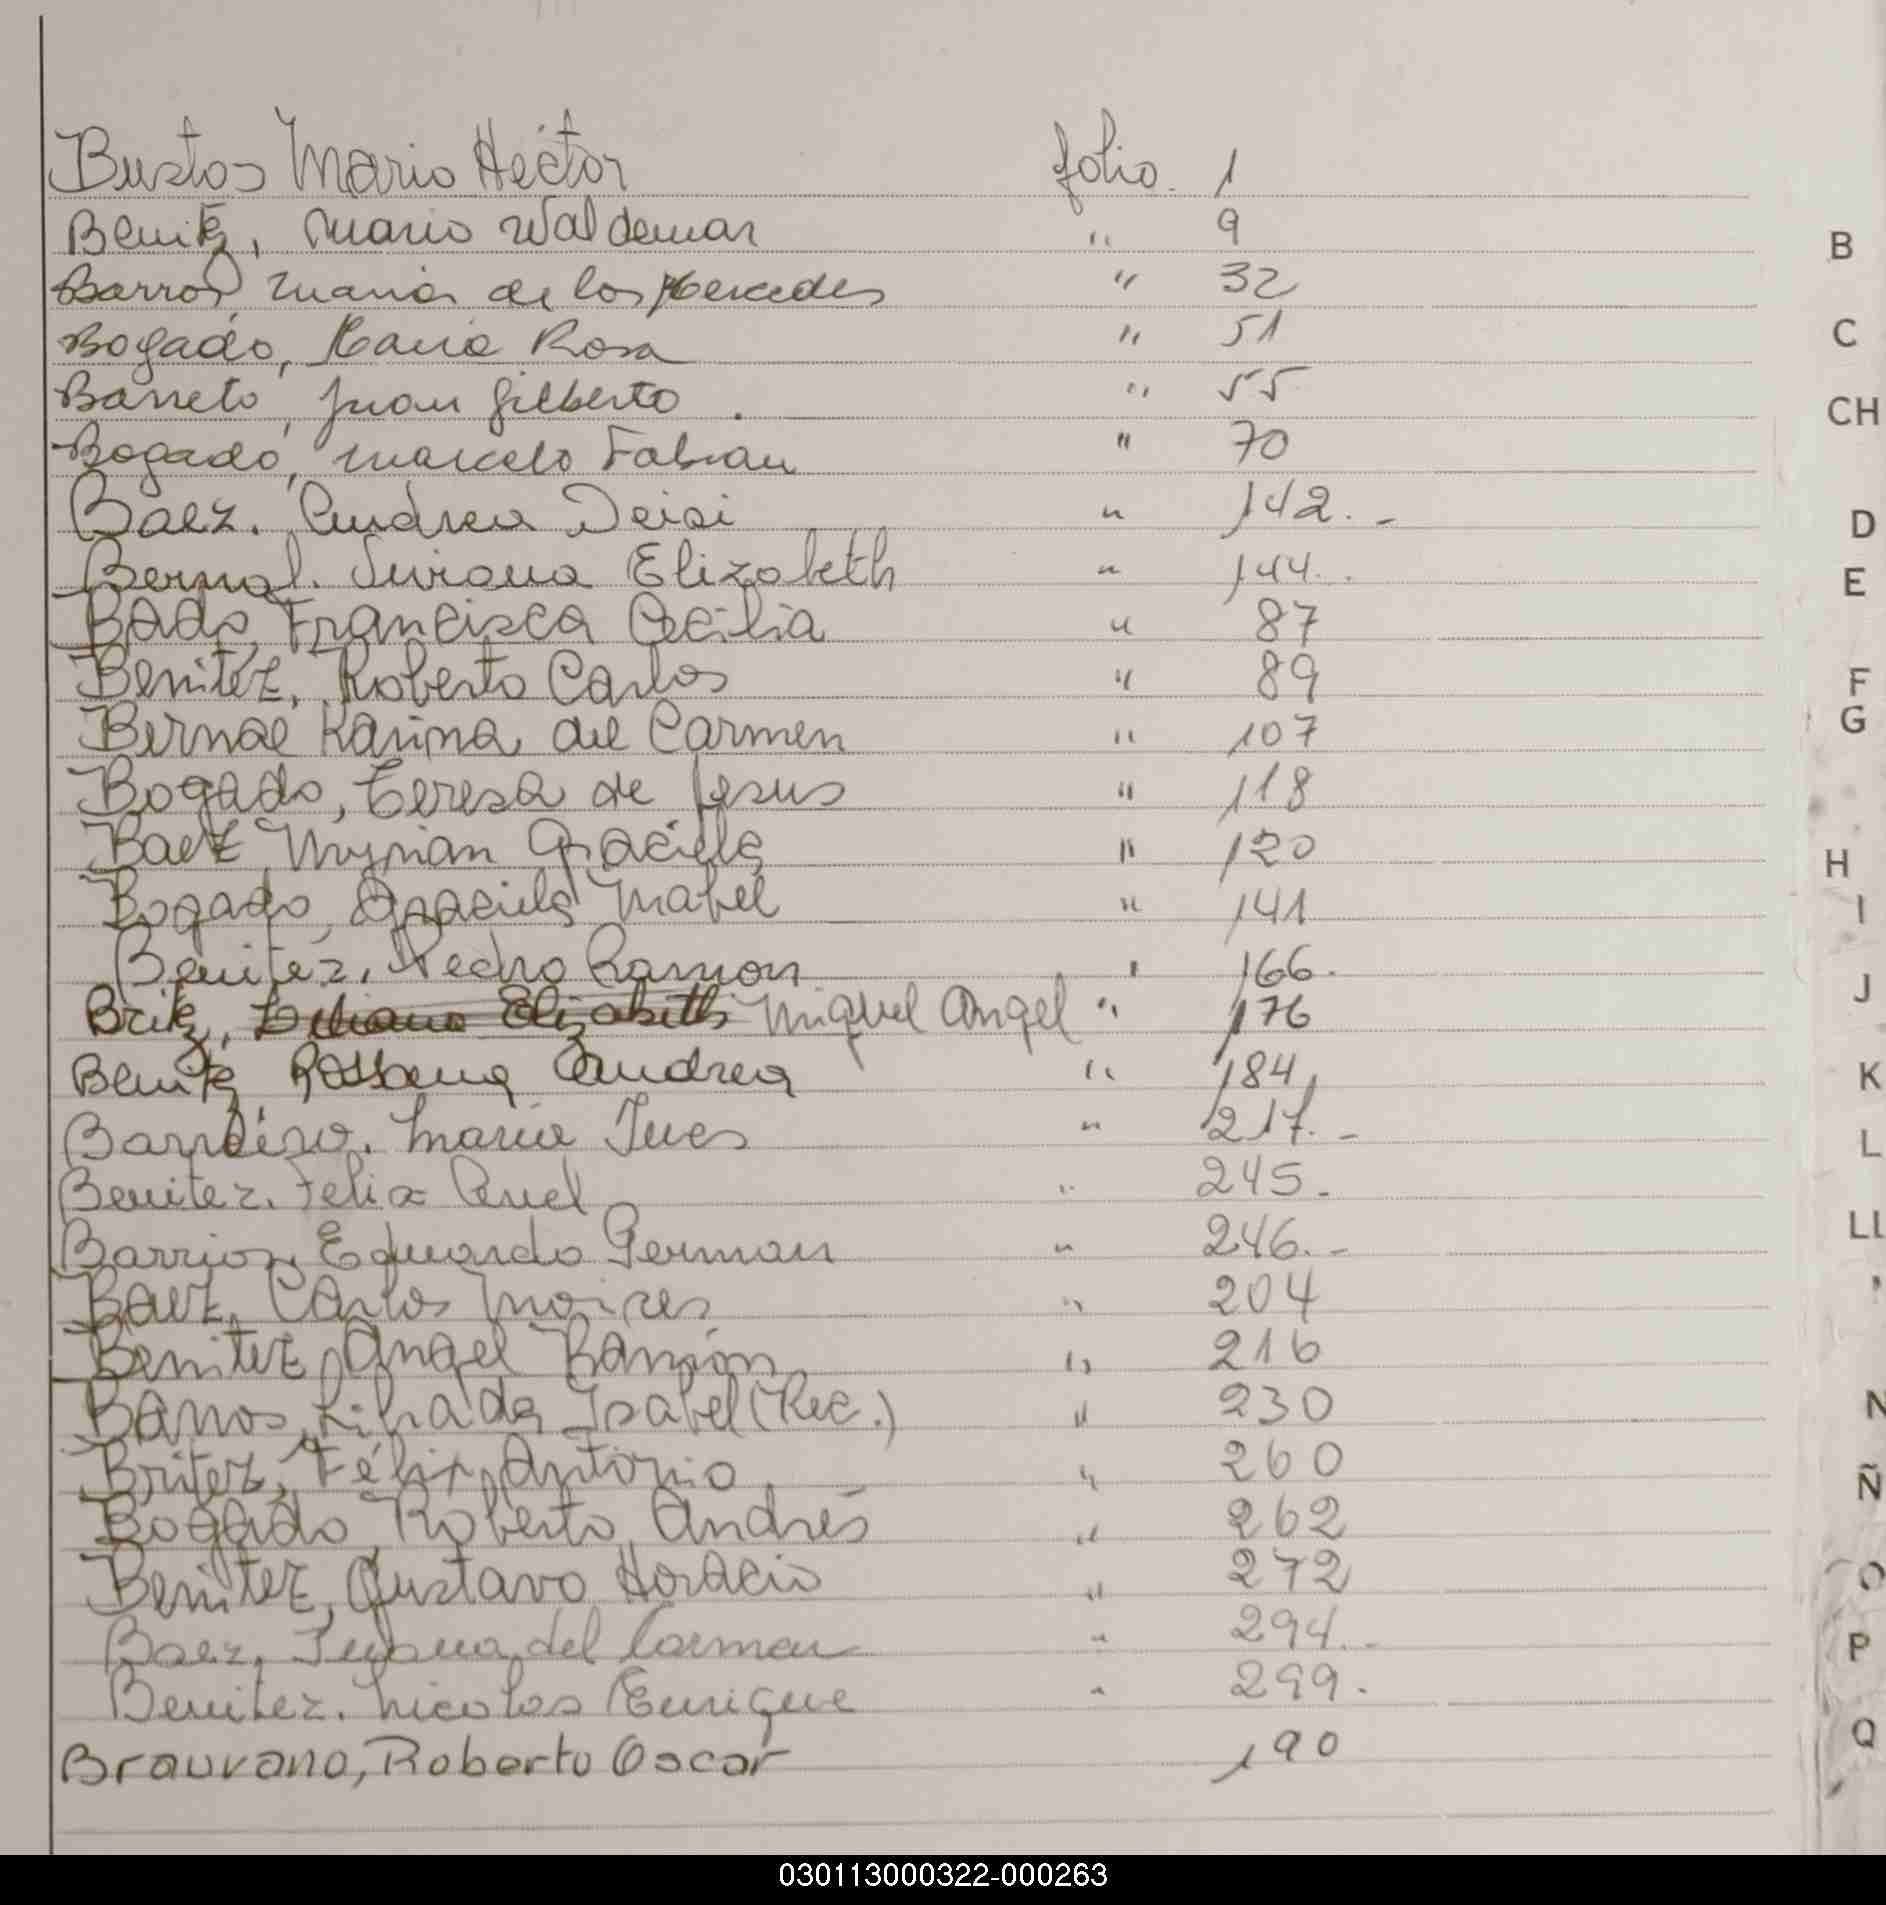 Bustos Mario Héctor folio. 1
Benitz, Mario Waldemar " 9
Barros, Maria de los Mercedes " 32
Bogado, Maria Rosa " 51
Barreto, Juan Gilberto . " 55
Bogado, Marcelo Fabian " 70
Baez. Andrea Deisi " 142.-
Bernal. Elizabeth " 144..
Bado, Francisca Cecilia " 87
Benitez, Roberto Carlos " 89
Bernal Karina del Carmen " 107
Bogado, Teresa de Jesus " 118
Baez Myrian Graciela " 120
Bogado, Graciela Mabel " 141
Benitez, Pedro Ramon " 166.
Britz, Miguel Angel " 176
Benitz, Rossana Andrea " 184,
Barreiro. Maria Ines " 217.-
Benitez. Felix " 245.
Barrios, Eduardo German " 246.-
Baez, Carlos " 204
Benitez, Angel Ramón " 216
Barros, Isabel (Rec.) " 230
Britez, Félix Antonio " 260
Bogado, Roberto Andrés " 262
Benitez, Gustavo Horacio " 272
Baez, del Carmen " 294.-
Benitez. Nicolas Enrique " 299.
Brauvano, Roberto Oscar 190
B
C
CH
D
E
F
G
H
I
J
K
L
LL
N
Ñ
O
P
Q
030113000322-000263